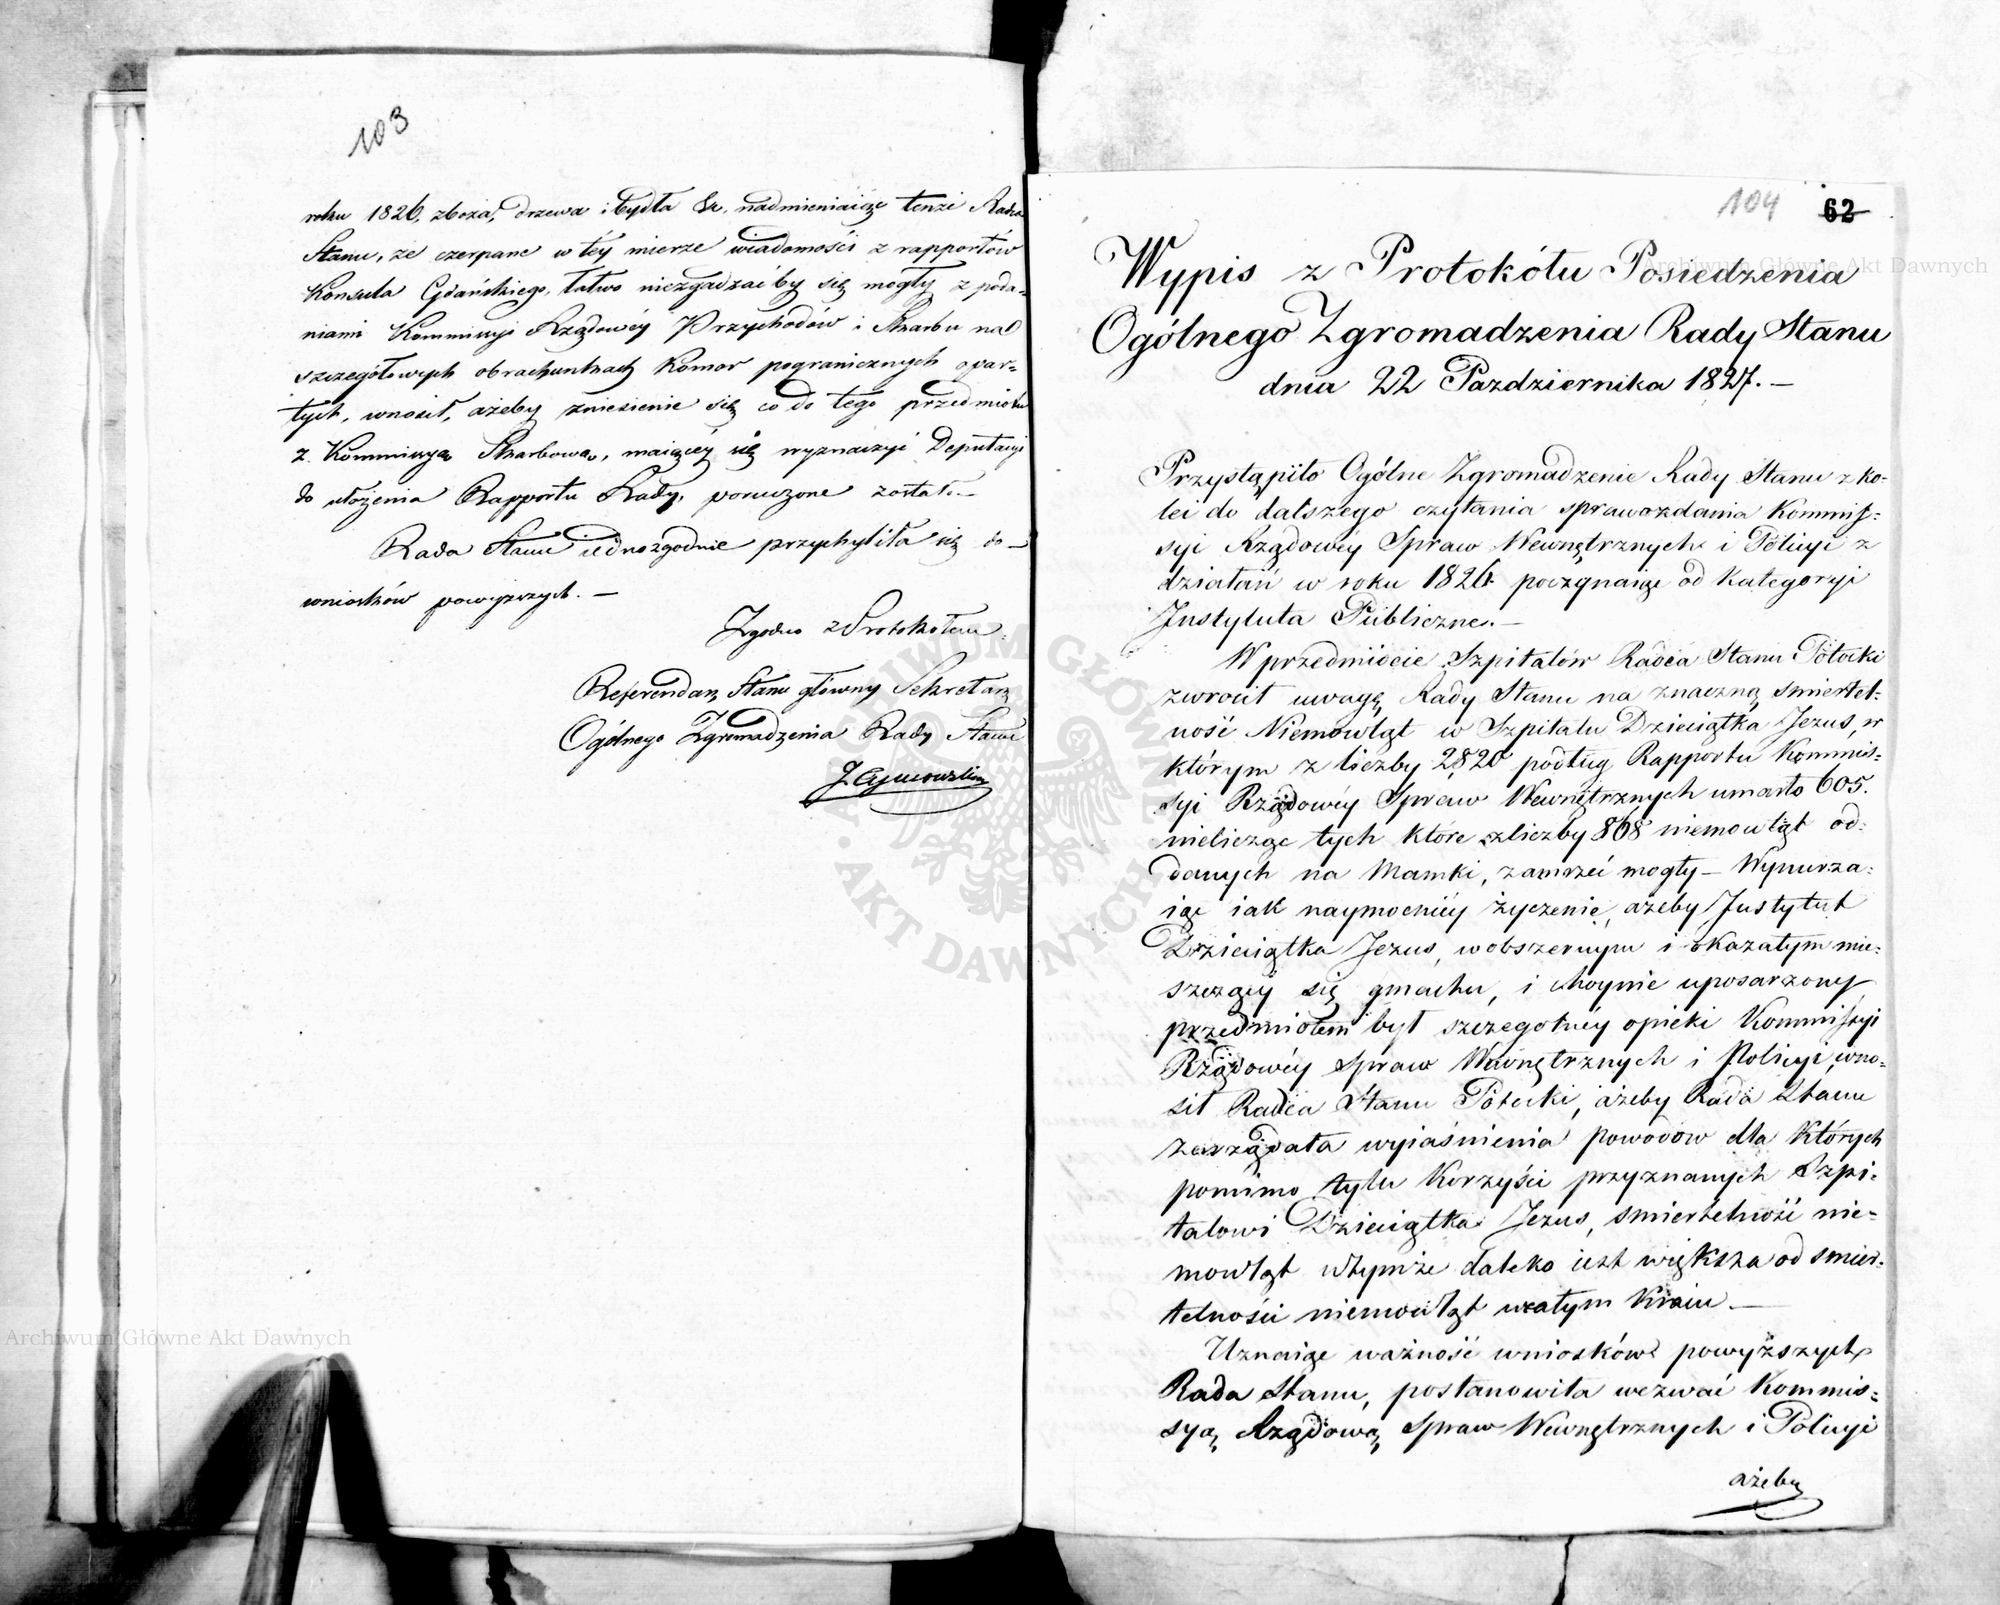 103
roku 1826, zboża, drzewa i bydła &c. nadmieniaiąc tenże Radca
Stanu, że czerpane w téy mierze wiadomości z rapportów
Konsula Gdańskiego, łatwo niezgadzać by się mogły z poda-
niami Kommissyi Rządowéy Przychodów i Skarbu na
szczegółowych obrachunkach Komor pogranicznych opar-
tych, wnosił, ażeby zniesienie się co do tego przedmiotu
z Kommissyą Skarbową, maiącéy się wyznaczyć Deputacyi
do ułożenia Rapportu Rady, poruczone zostało.—
Rada Stanu iednozgodnie przychyliła się do—
wniosków powyższych.—
Zgodno z Protokołem
Referendarz Stanu główny Sekretarz
Ogólnego Zgromadzenia Rady Stanu
104 62
Wypis z Protokółu Posiedzenia
Ogólnego Zgromadzenia Rady Stanu
dnia 22 Pazdziernika 1827.—
Przystąpiło Ogólne Zgromadzenie Rady Stanu z ko-
lei do dalszego czytania sprawozdania Kommis-
syi Rządowéy Spraw Wewnętrznych i Policyi z
działań w roku 1826 począwszy od Kategoryi
Instytuta Publiczne.—
W przedmiocie Szpitalów Radca Stanu Potocki
zwrócił uwagę Rady Stanu na znaczną smiertel-
ność Niemowląt w Szpitalu Dzieciątka Jezus, w
którym z liczby 2820 podług Rapportu Kommis-
syi Rządowéy Spraw Wewnętrznych umarło 605.
nielicząc tych które z liczby 868 niemowląt od-
danych na Mamki, zamrzeć mogły— Wynurza-
iąc iak naymocniéy życzenie, ażeby Instytut
Dzieciątka Jezus, w obszernym i okazałym mie-
szczący się gmachu, i hoynie uposarzony
przedmiotem był szczegolnéy opieki Kommissyi
Rządowéy Spraw Wewnętrznych i Policyi, wno-
sił Radca Stanu Potocki, ażeby Rada Stanu
zarządała wyiaśnienia powodow dla których
pomimo tylu korzyści przyznanych Szpi-
talowi Dzieciątka Jezus, smiertelność nie-
mowląt w tymże daleko iest większa od smier-
telności niemowląt w całym Kraiu.—
Uznaiąc ważność wniosków powyższych
Rada Stanu, postanowiła wezwać Kommis-
syą Rządową Spraw Wewnętrznych i Policyi
ażeby
ARCHIWUM GŁÓWNE AKT DAWNYCH
Archiwum Główne Akt Dawnych
Archiwum Główne Akt Dawnych